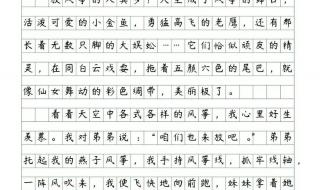 活泼可爱的小金鱼，勇猛高飞的老鹰，还有那
长着无数只脚的大蜈蚣……它们恰似顽皮的精
灵，在同白云戏耍，拖着五颜六色的尾巴，就
像仙女舞动的彩色绸带，美丽极了。
看着天空中各式各样的风筝，我心里好生
羡慕。我对弟弟说：“咱们也来放吧。”弟弟
托起我的燕子风筝，我手持风筝线，抓牢线轴，
一阵风吹来，我便飞快地向前跑，妹妹拿着她